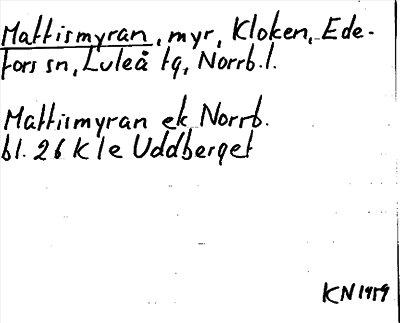 Mattismyran, myr, Kloken, Ede-
fors sn, Luleå tg, Norrb. l.
Mattismyran ek Norrb.
bl. 26 K le Uddberget
KN 1959